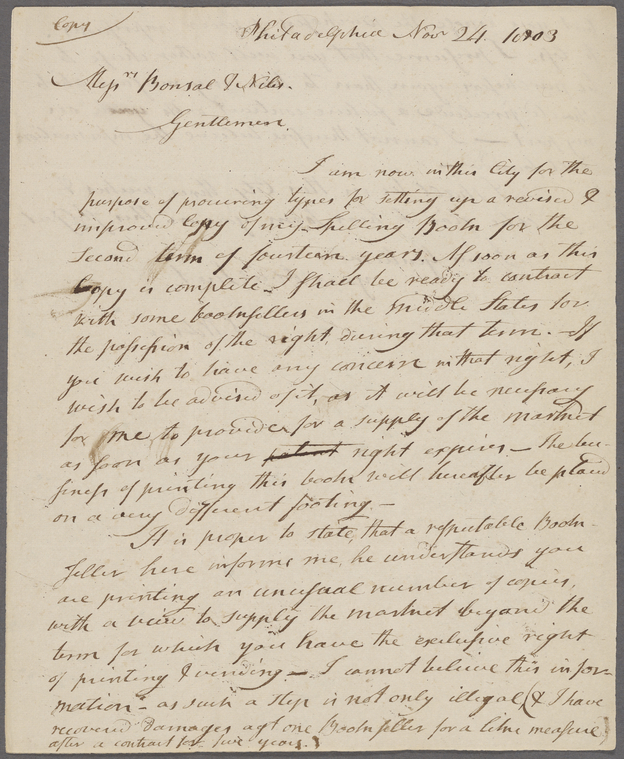 Copy
Philadelphia Nov 24. 1803
Messrs Bonsal & Niles.
Gentlemen,
I am now in this City for the
purpose of procuring types for setting up a revised &
improved Copy of my Spelling Book for the
second term of fourteen years. As soon as this
Copy is complete I shall be ready to contract
with some booksellers in the middle States for
the possession of the right during that term. — If
you wish to have any concern in that right, I
wish to be advised of it, as it will be necessary
for me to provide for a supply of the market
as soon as your patent right expires — The bu-
siness of printing this book will hereafter be placed
on a very different footing —
It is proper to state, that a respectable Book-
seller here informs me, he understands you
are printing an unusual number of copies,
with a view to supply the market beyond the
term for which you have the exclusive right
of printing & vending — I cannot believe this infor-
mation — as such a step is not only illegal (& I have
recovered damages agt one Bookseller for a like measure
after a contract for five years.)